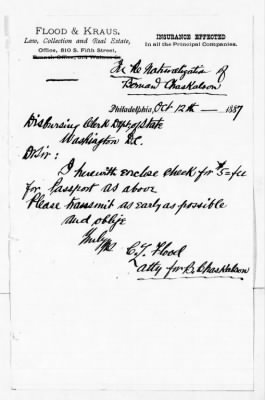 FLOOD & KRAUS.
Law, Collection and Real Estate,
Office, 810 S. Fifth Street,
Branch Office, 514 Walnut
INSURANCE EFFECTED
In all the Principal Companies.
In Re Naturalization of
Bernard Chaskelson
Philadelphia, Oct 12th 1887
Disbursing Clerk Dept of State
Washington D.C.
Dr Sir:
I herewith enclose check for $5= fee
for Passport as above
Please transmit as early as possible
and oblige
Truly yrs
C. J. Flood
atty for B. Chaskelson